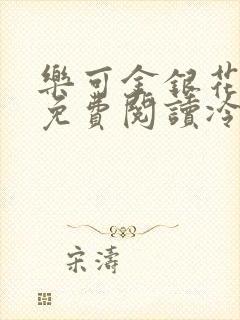 樂可金銀花
免費閱讀冷
宋濤